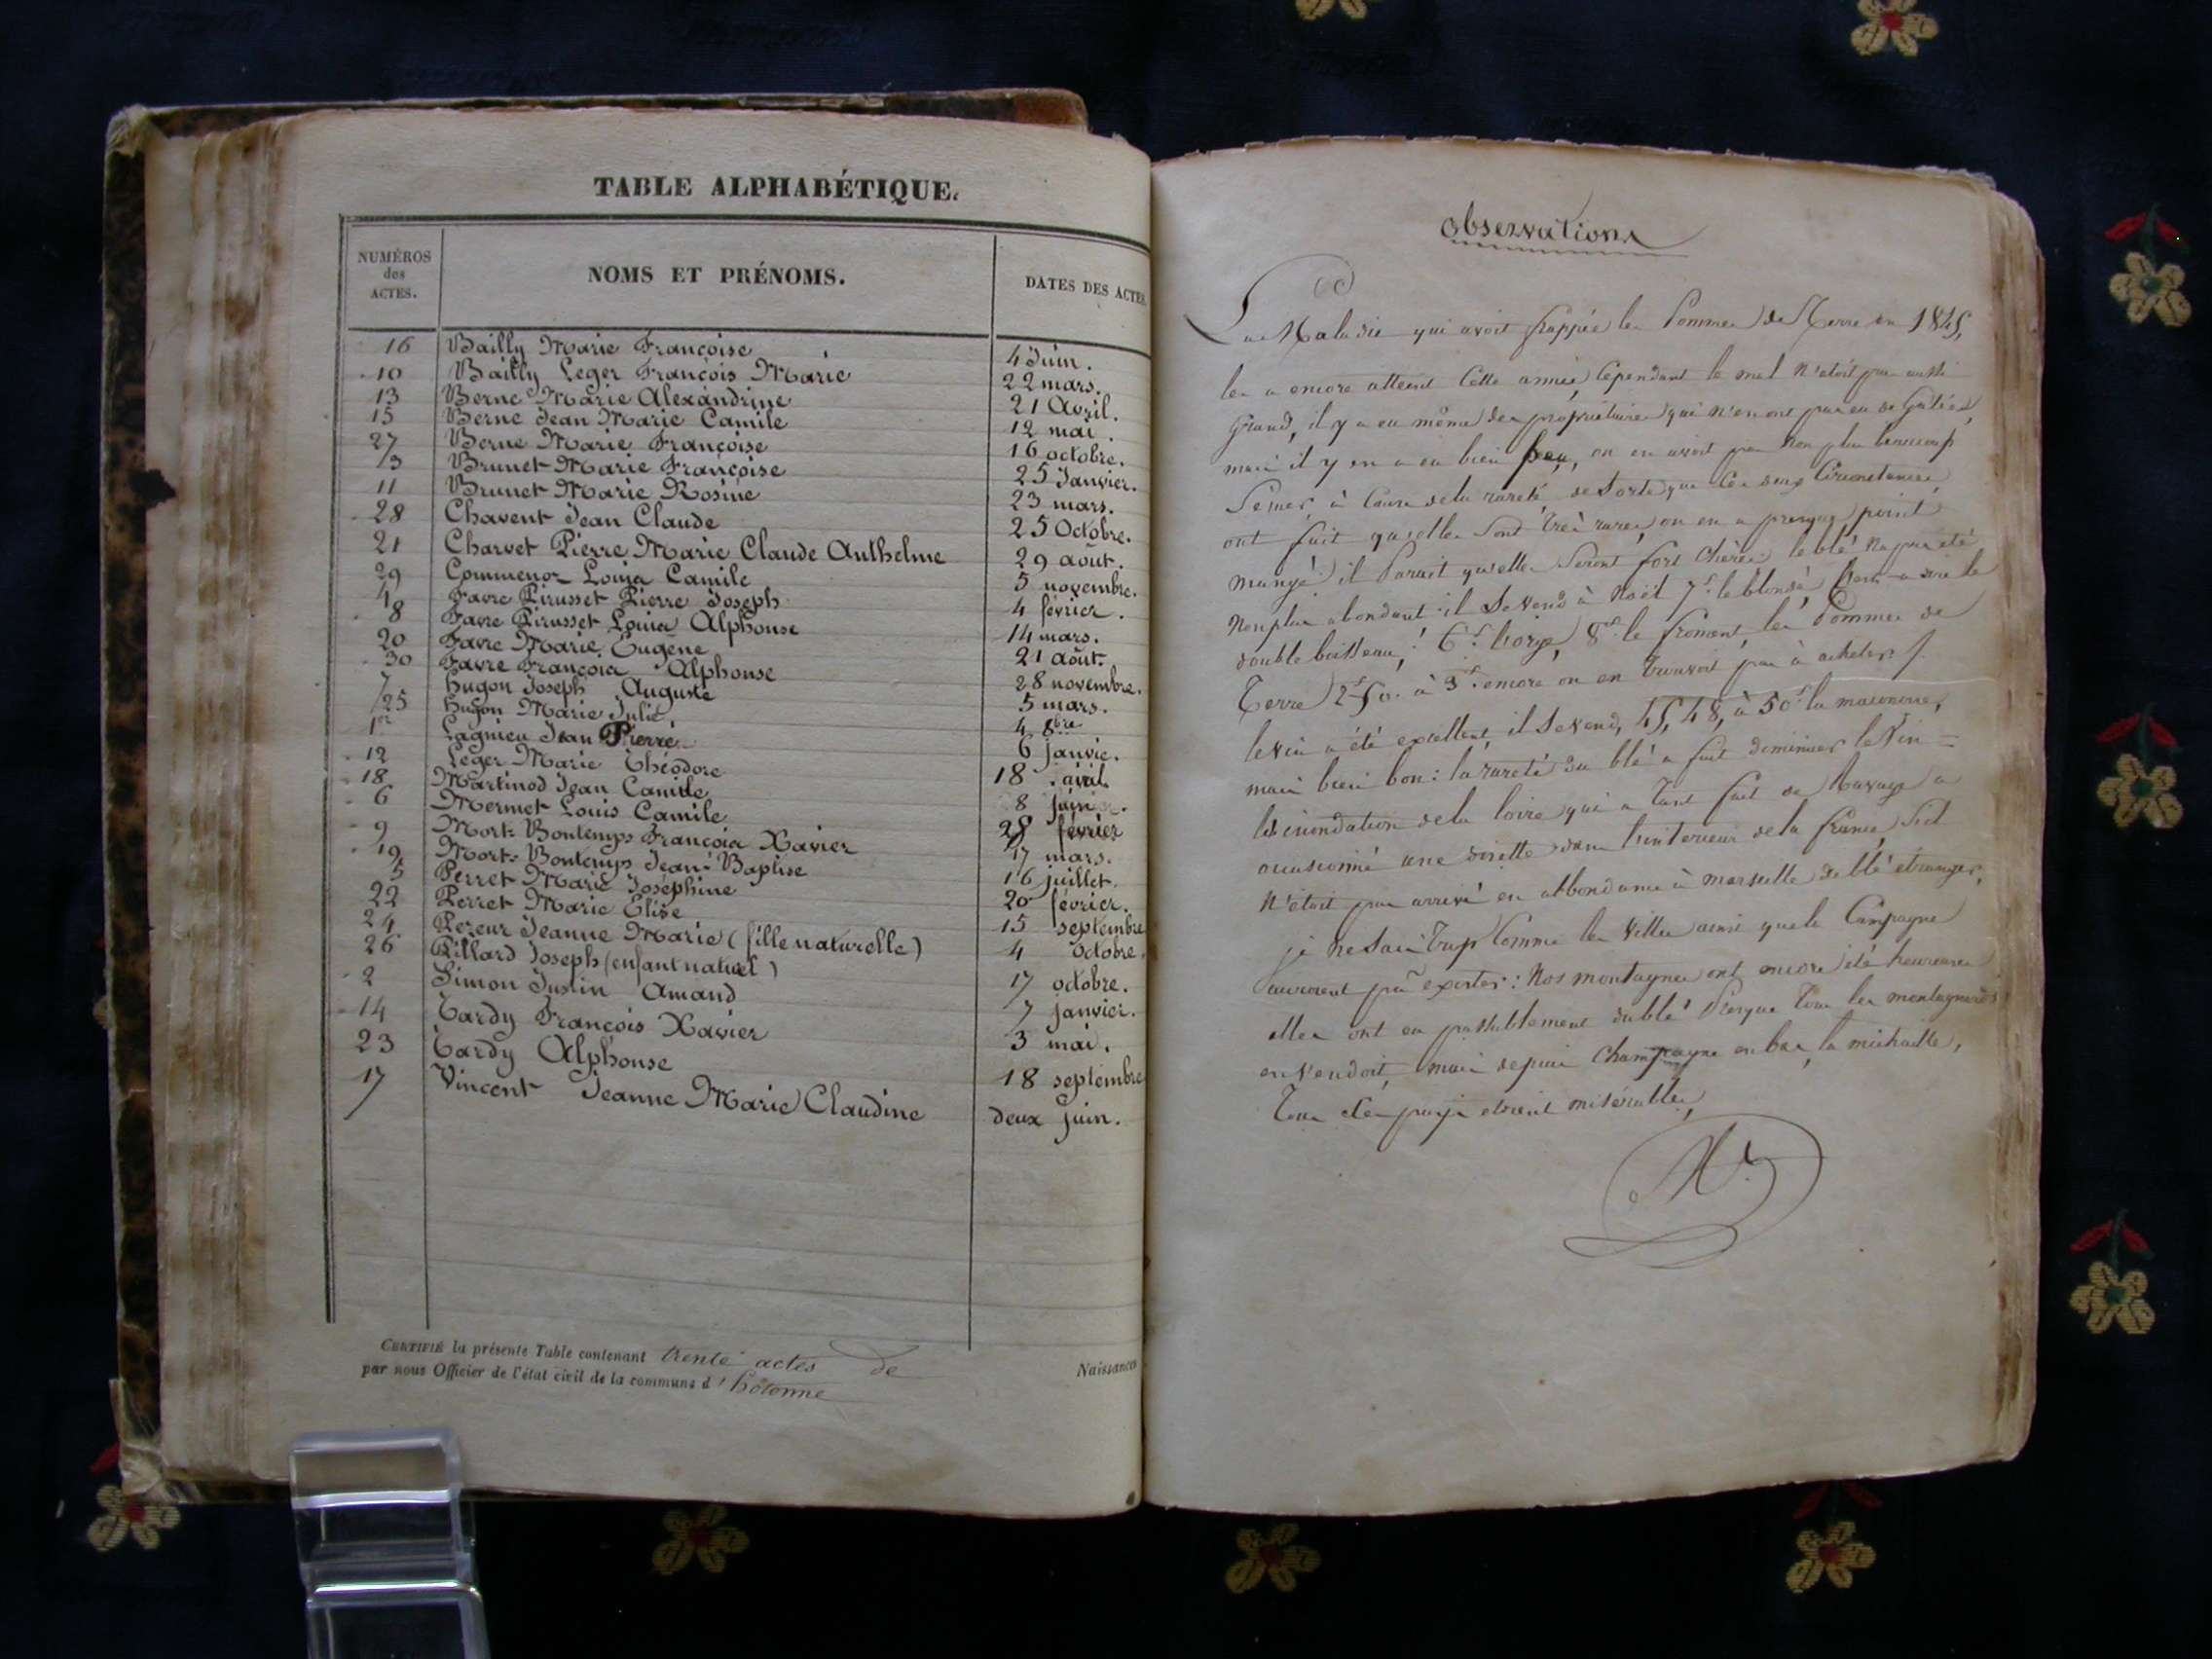 TABLE ALPHABÉTIQUE.
NUMÉROS des ACTES.
NOMS ET PRÉNOMS.
DATES DES ACTES.
16 Bailly Marie Françoise 4 Juin.
10 Bailly Leger François Marie 22 mars.
13 Berne Marie Alexandrine 21 Avril.
15 Berne Jean Marie Camile 12 mai.
27 Berne Marie Françoise 16 octobre.
3 Brunet Marie Françoise 25 Janvier.
11 Brunet Marie Rosine 23 mars.
28 Chavent Jean Claude 25 Octobre.
21 Charvet Pierre Marie Claude Anthelme 29 août.
29 Commenoz Louis Camile 5 novembre.
4 Favre Pirusset Pierre Joseph 4 février.
8 Favre Pirusset Louis Alphonse 14 mars.
20 Favre Marie Eugène 21 août.
30 Favre François Alphonse 28 novembre.
7 hugon Joseph Auguste 5 mars.
25 hugon Marie Julie 4 8bre
1er Lagnieu Jean Pierre 6 janvie.
12 Léger Marie Théodore 18 avril
18 Martinod Jean Camille 8 juin.
6 Mermet Louis Camile 28 février
9 Mort: Bontemps François Xavier 17 mars.
19 Mort: Bontemps Jean Baptise 16 juillet.
5 Perret Marie Joséphine 20 février.
22 Perret Marie Elise 15 septembre
24 Pezeur Jeanne Marie (fille naturelle) 4 octobre.
26 Pillard Joseph (enfant naturel) 17 octobre.
2 Simon Justin Amand 7 janvier.
14 Tardy François Xavier 3 mai.
23 Tardy Alphonse 18 septembre
17 Vincent Jeanne Marie Claudine deux juin.
CERTIFIÉ la présente Table contenant trente actes de Naissances
par nous Officier de l'état civil de la commune d'hotonne
Observations
La Maladie qui avoit frappée les Pommes de Terre en 1845,
les a encore atteint Cette année, Cependant le mal n'étoit pas aussi
Grand, il y a eu même des propriétaires qui n'en ont pas eu de Gatées,
mais il y en a eu bien peu, on en avoit pas non plus beaucoup
Semer, à Cause de la rareté de Sorte que Ces deux Circonstances
ont fait qu'elles Sont très rares, on en a presque point
mangé: il Parait qu'elles Seront fort Chères: le blé n'a pas été
Non plus abondant: il Se Vend à Noël 7f. le blondé, c'est-a-dire le
double boisseau,: 6f. l'orge, 8f. le froment, les Pommes de
Terre 2f50. à 3f. encore on en trouvoit pas à acheter.
le vin a été excellent, il Se vend, 45, 48, à 50f la
mais bien bon: la rareté du blé a fait diminuer le Vin =
les inondation de la loire qui a Tant fait de Ravage a
occasionné une disette dans l'interieur de la france, S'il
N'étoit pas arrivé en abbondance à marseille de blé etranger,
je ne Sais Trop Comme les Villes ainsi que la Campagne
auroient pû exister: Nos montagnes ont encore été heureuses
elles ont eu passablement du blé Presque Tous les montagnards
en Vendoit, mais depuis Champagne en bas, la michaille,
Tous Ces pays etoient misérables,